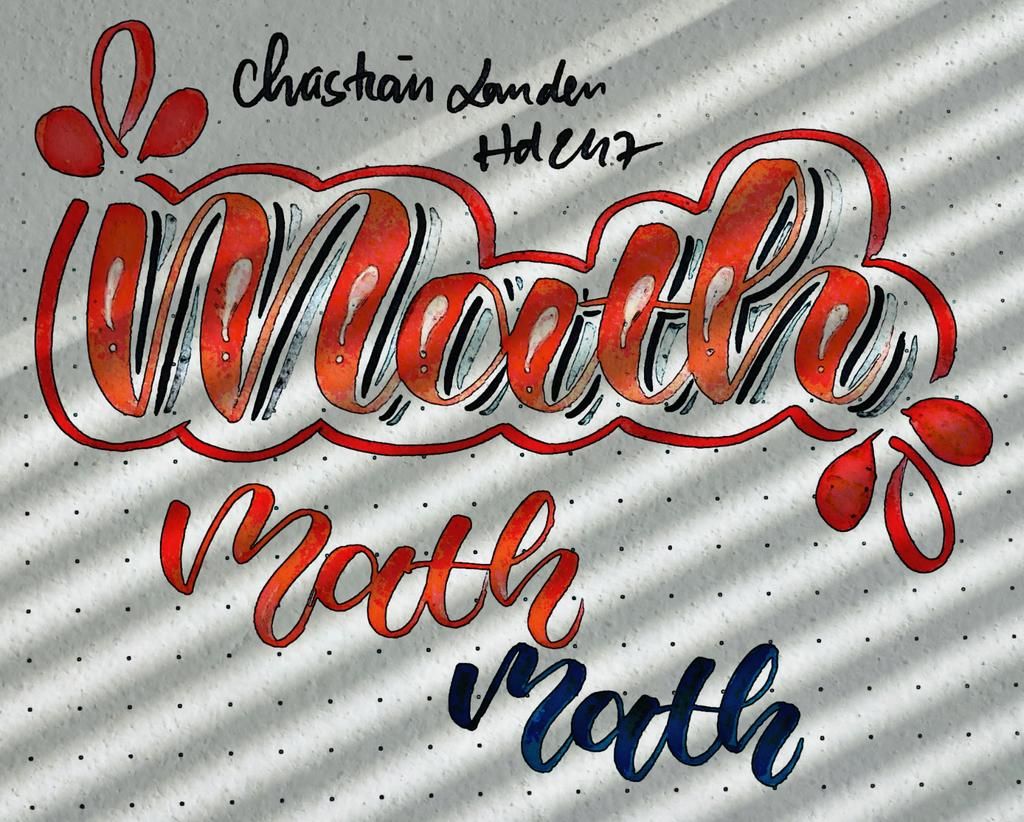 Chrastian Landen
Hd 247
Math
Math
Math